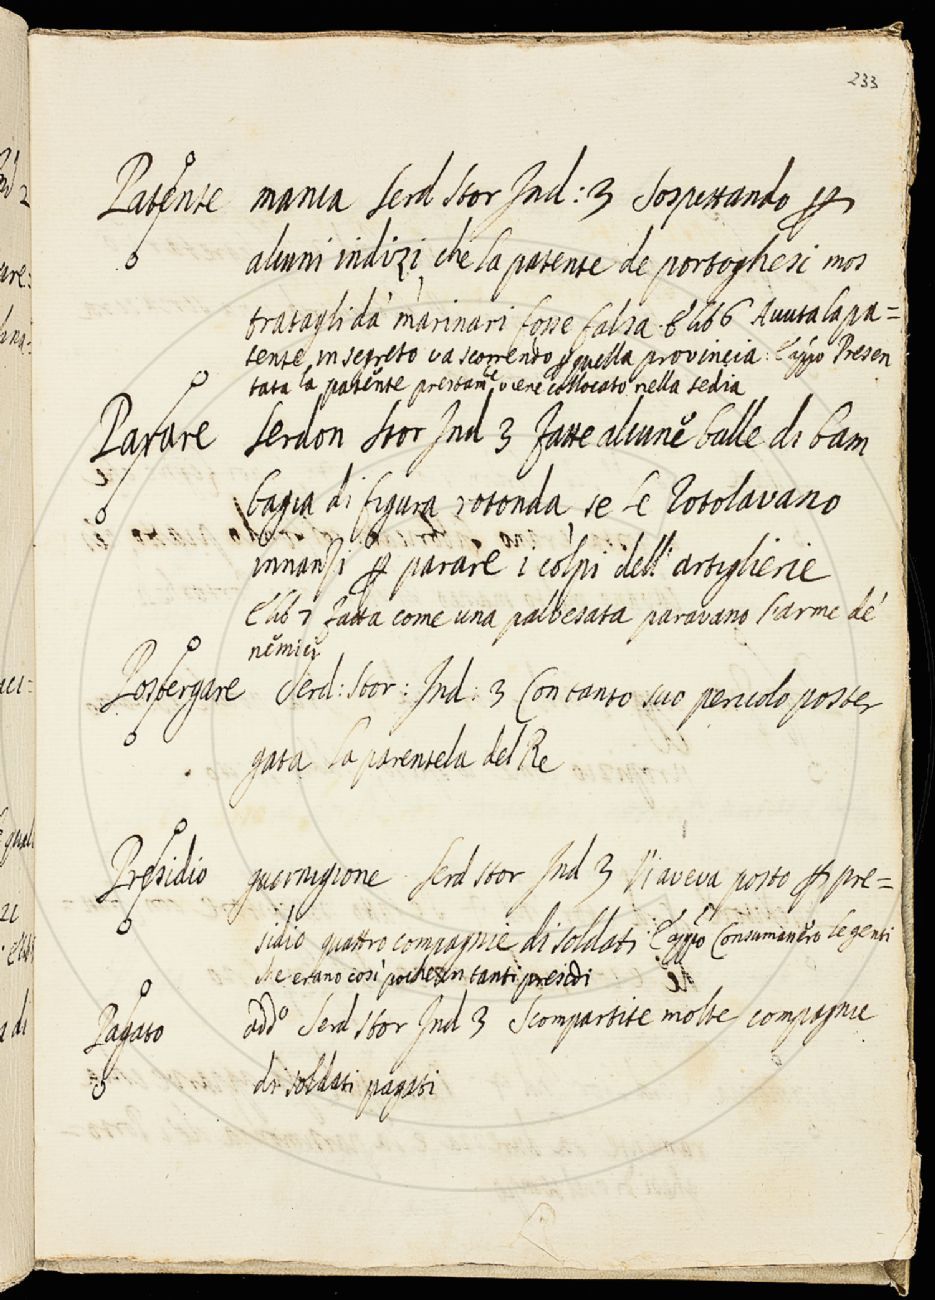 233
Patente manca Serd Stor Ind: 3 Sospettando ꝑ
alcuni indizi che la patente de portoghesi mos
tratagli da marinari fosse falsa. E lib 6 Avuta la pa=
tente in segreto va scorrendo ꝑ quella provincia: E appo Presen
tata la patente prestamte viene collocato nella sedia
Parare Serdon Stor Ind 3 Fatte alcune balle di bam
bagia di figura rotonda se le Rotolavano
innanzi ꝑ parare i colpi dell' artiglierie
E lib 7 Fatta come una palvesata paravano l'arme de'
nemici
Postergare Serd: Stor: Ind: 3 Con tanto suo pericolo poster
gata la parentela del Re
Presidio guernigione Serd Stor Ind 3 V'aveva posto ꝑ pre=
sidio quattro compagnie di soldati E appo Consumavero le genti
che erano così poche in tanti presidi
Pagato add° Serd Stor Ind 3 Scompartite molte compagnie
di soldati pagati